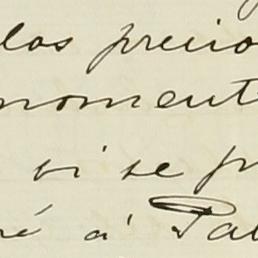 los precio
moment
si se p
ré á Pa